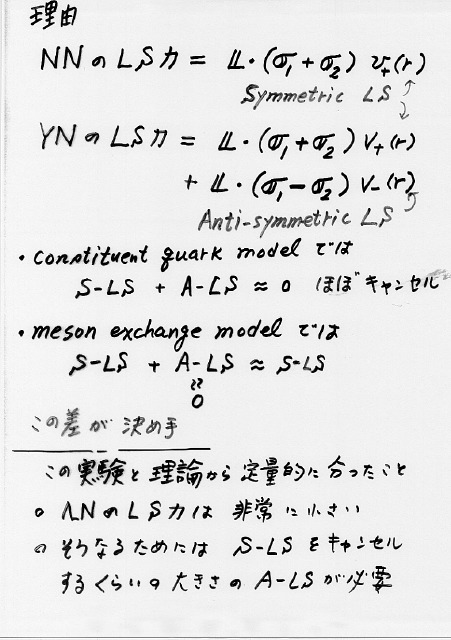 理由
NNのLS力 = 𝕃・(σ₁+σ₂) v₊(r)
Symmetric LS
YNのLS力 = 𝕃・(σ₁+σ₂) V₊(r)
+ 𝕃・(σ₁-σ₂) V₋(r)
Anti-symmetric LS
・constituent quark model では
S-LS + A-LS ≈ 0 ほぼキャンセル
・meson exchange model では
S-LS + A-LS ≈ S-LS
≈
0
この差が決め手
この実験と理論から定量的に分ったこと
○ ΛNのLS力は 非常に小さい
○ そうなるためには S-LSをキャンセル
するくらいの大きさのA-LSが必要